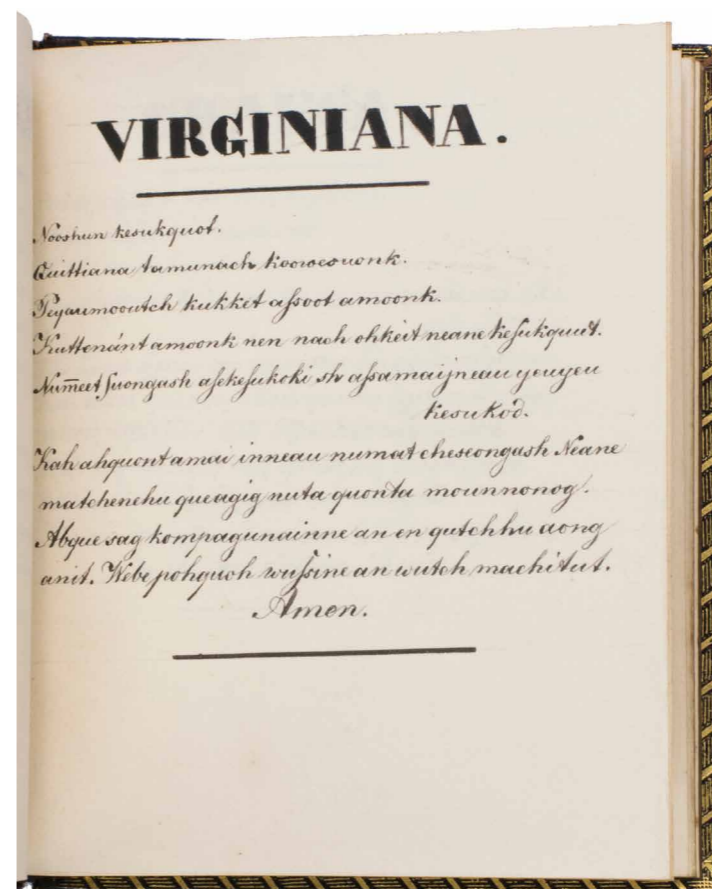 VIRGINIANA.
Nooshun kesukquot.
Quittiana tamunach koowesuonk.
Peyaumooutch kukket aſsoot amoonk.
Kuttenánt amoonk nen nach ohkeit neane keſukquut.
Num̅eet ſuongash aſekeſukoki sh aſsamaijneau yeuyeu
kesukod.
Kah ahquontamai inneau numat cheseongash Neane
matchenehu queagig nuta quonta mounnonog.
Abque sag kompagunainne an en qutchhu aong
anit. Webe pohquoh wuſsine an wutch machitut.
Amen.